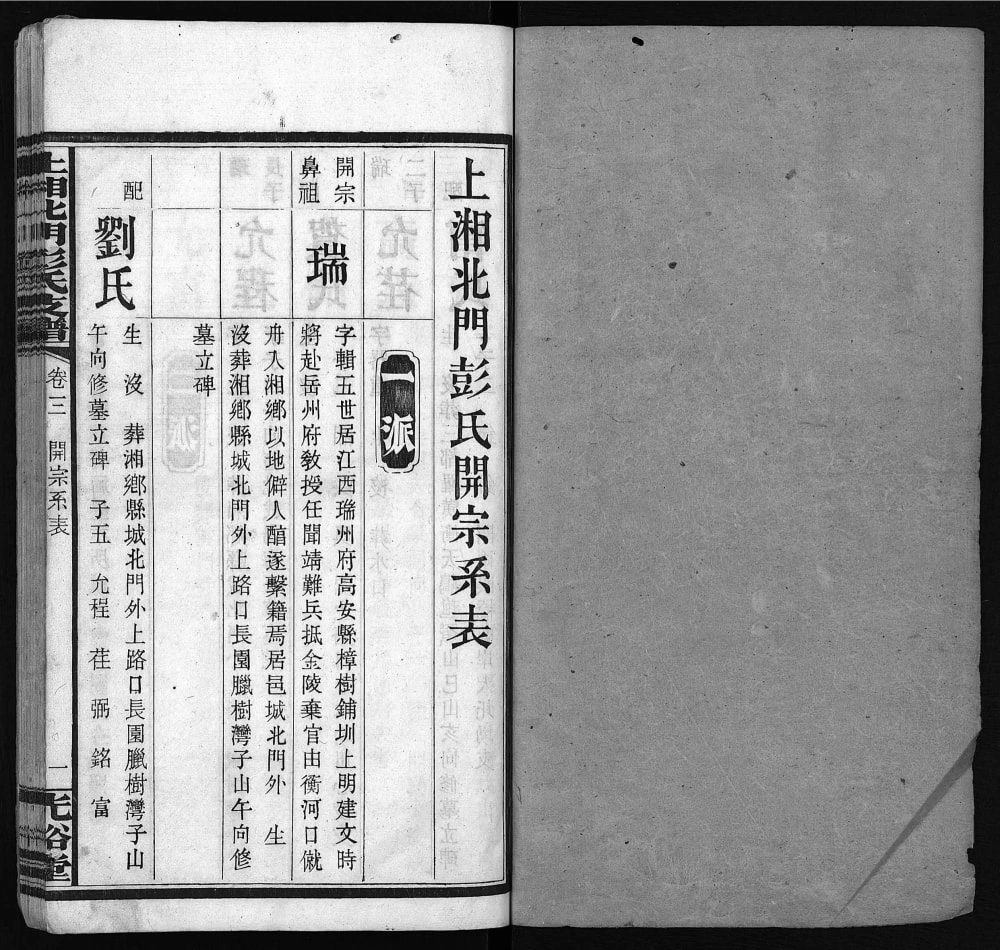 上湘北門彭氏開宗系表
一派
開宗
鼻祖
瑞
字輯五世居江西瑞州府高安縣樟樹鋪圳上明建文時
將赴岳州府教授任聞靖難兵抵金陵棄官由衡河口僦
舟入湘鄉以地僻人醕遂繫籍焉居邑城北門外 生
沒葬湘鄉縣城北門外上路口長園臘樹灣子山午向修
墓立碑
配
劉氏
生 沒 葬湘鄉縣城北門外上路口長園臘樹灣子山
午向修墓立碑 子五允程 荏 弼 銘 富
上湘北門彭氏支譜
卷三
開宗系表
一
光裕堂